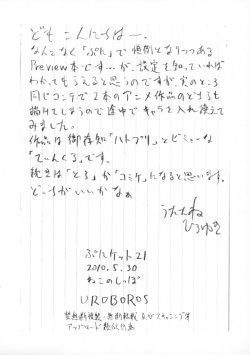 ども こんにちはー。
なんとなく「ぷに」で恒例となりつつある
Preview本です…が、設定を知っていれば
わかってもらえると思うのですが、実のところ
同じコンテで2本のアニメ作品のどちらも
描けてしまうので途中でキャラを入れ換えて
みました。
作品は御存知「ハトプリ」とビミョーな
「てぃんくる」です。
続きは「とら」か「コミケ」になると思います。
どっちがいいかなぁ
うたたね
ひろゆき
ぷにケット21
2010.5.30
ねこのしっぽ
UROBOROS
禁無断複製・無断転載 及びスキャニング等
アップロード